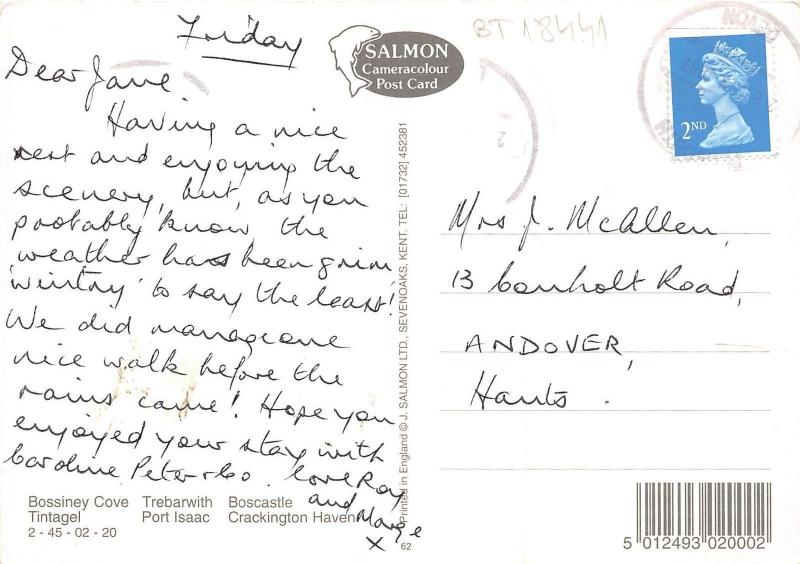 Friday
Dear Jane
Having a nice
rest and enjoying the
scenery, but, as you
probably know the
weather has been grim
'wintry' to say the least!
We did manage one
nice walk before the
rains came! Hope you
enjoyed your stay with
Caroline Peter & Co. Love Ray
and Marge
x
Bossiney Cove Trebarwith Boscastle
Tintagel Port Isaac Crackington Haven
2 - 45 - 02 - 20
SALMON
Cameracolour
Post Card
Printed in England © J. SALMON LTD., SEVENOAKS, KENT. TEL: [01732] 452381
62
BT 18441
DEVON
2ND
Mrs J. McAllen,
13 Road,
ANDOVER,
Hants.
5 012493 020002